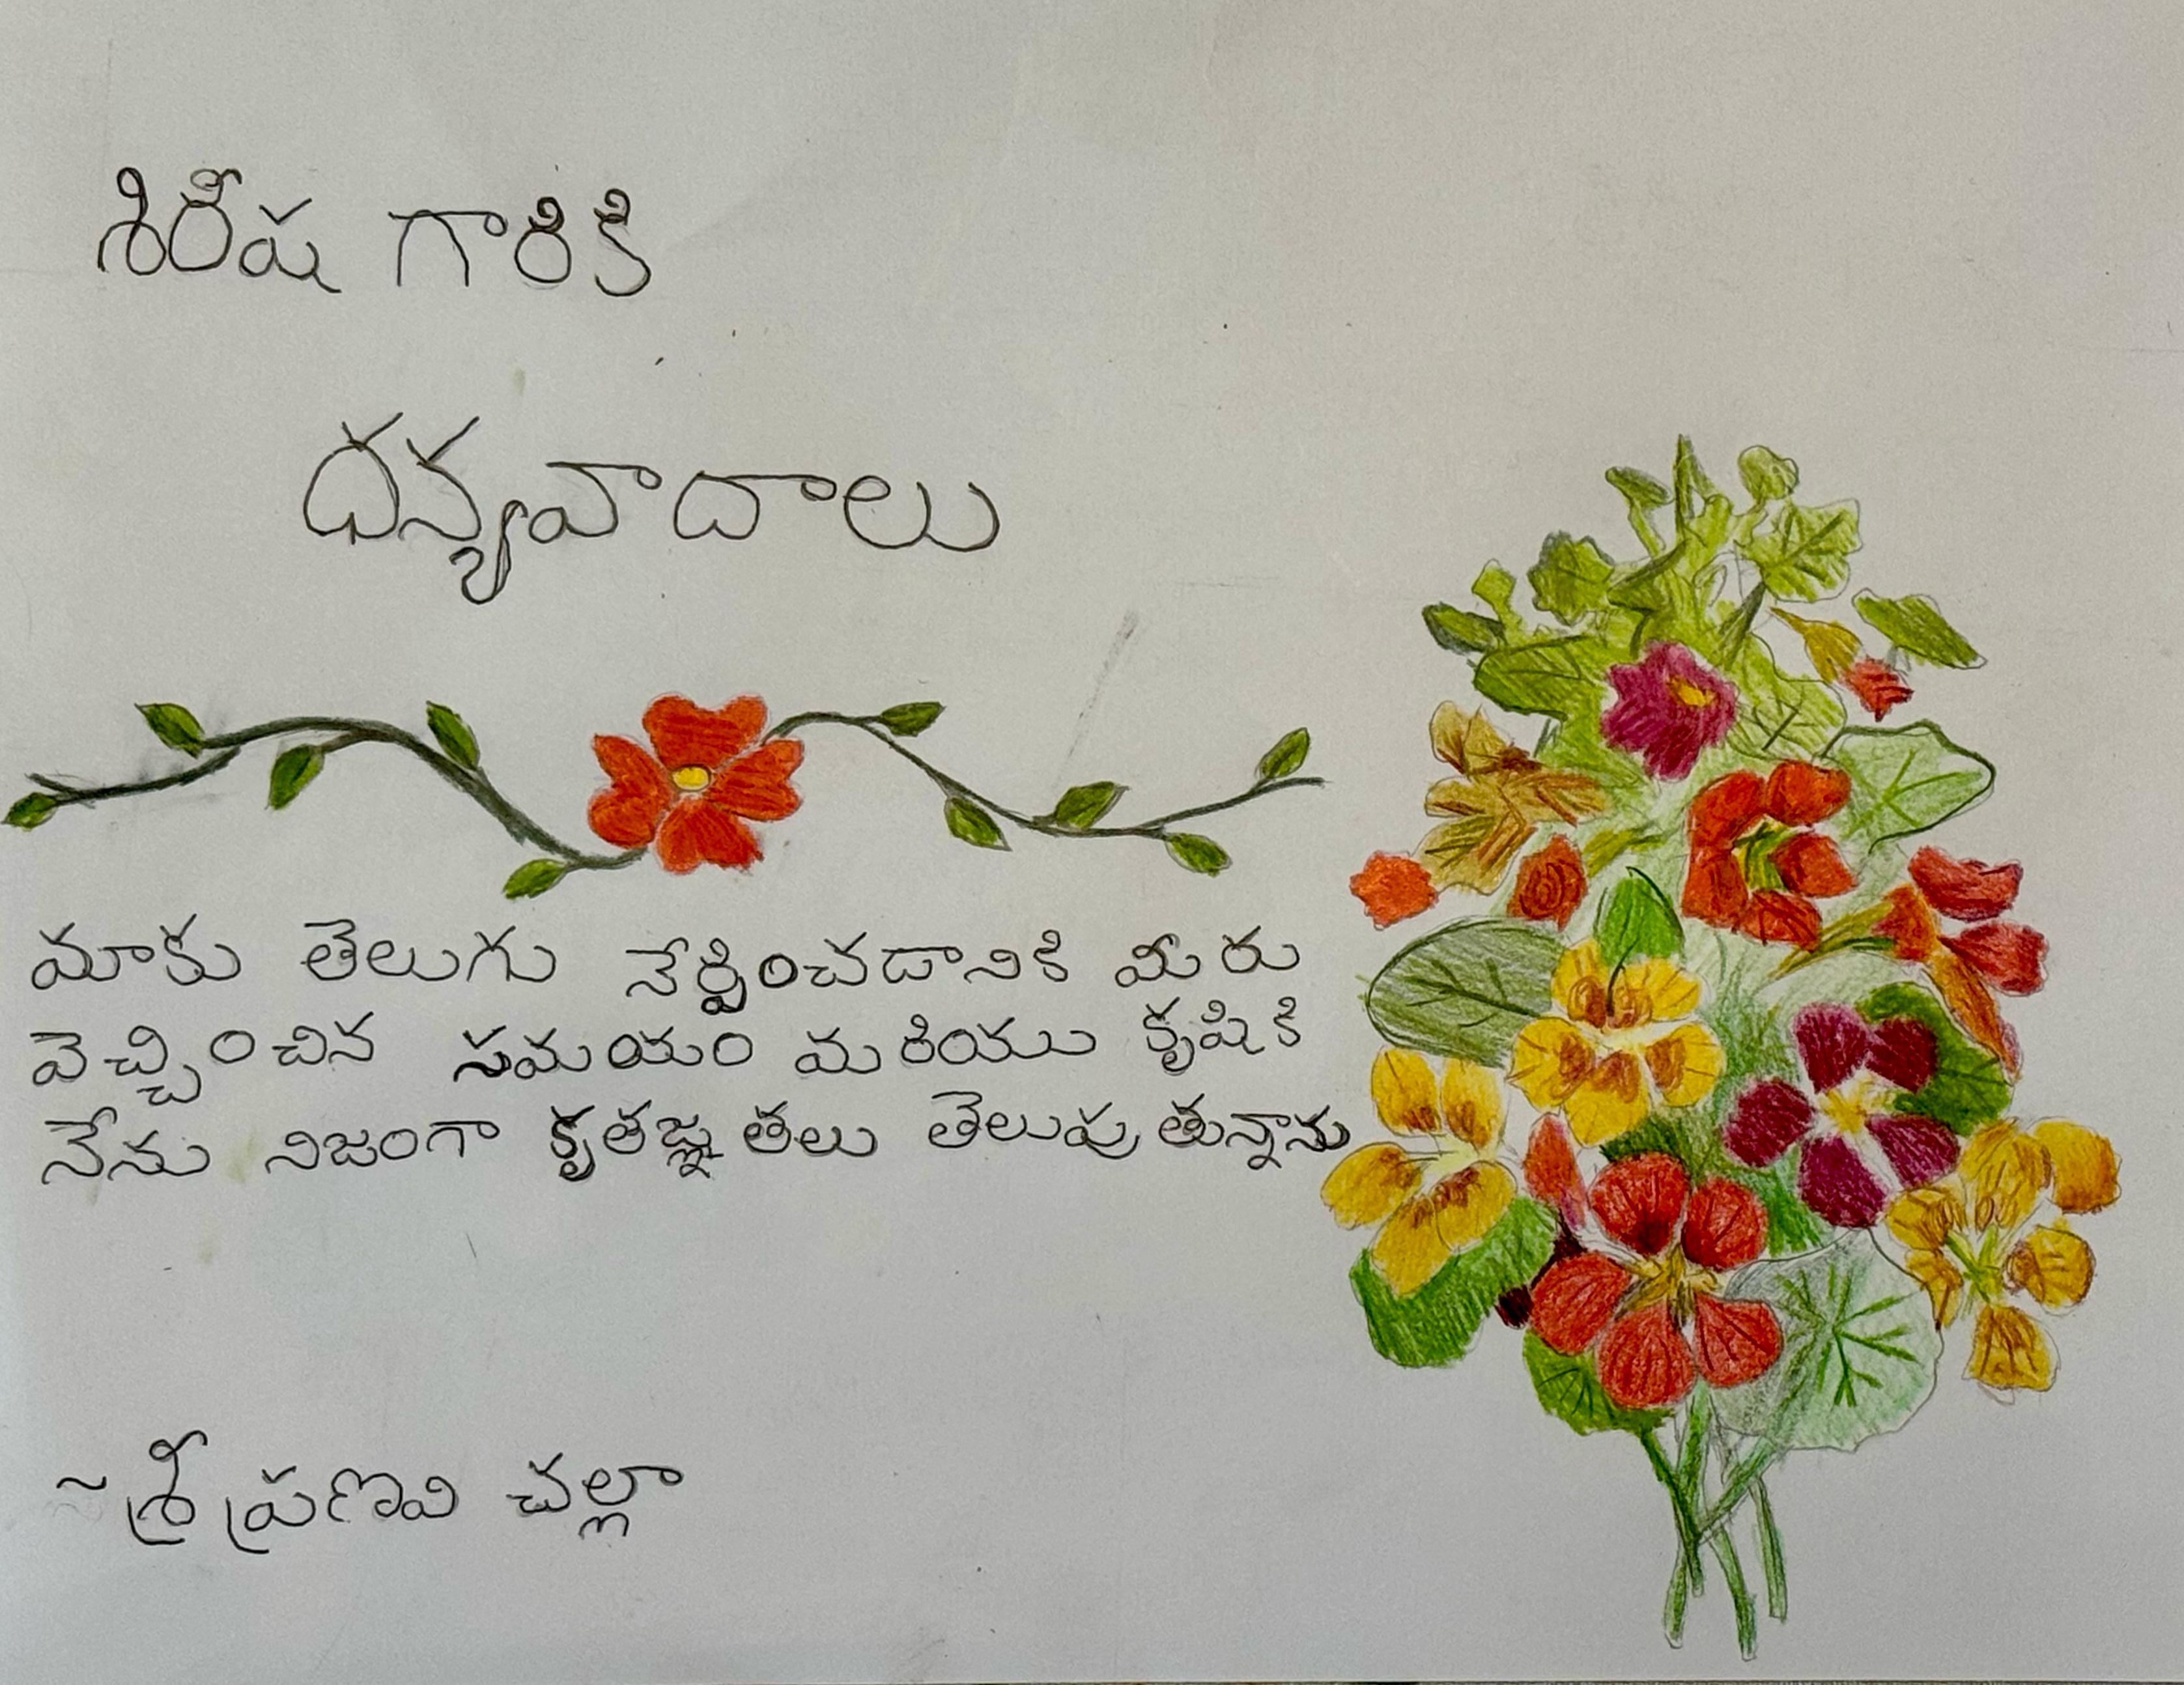 శిరీష గారికి
ధన్యవాదాలు
మాకు తెలుగు నేర్పించడానికి మీరు
వెచ్చించిన సమయం మరియు కృషికి
నేను నిజంగా కృతజ్ఞతలు తెలుపుతున్నాను
~ శ్రీ ప్రణవి చల్లా